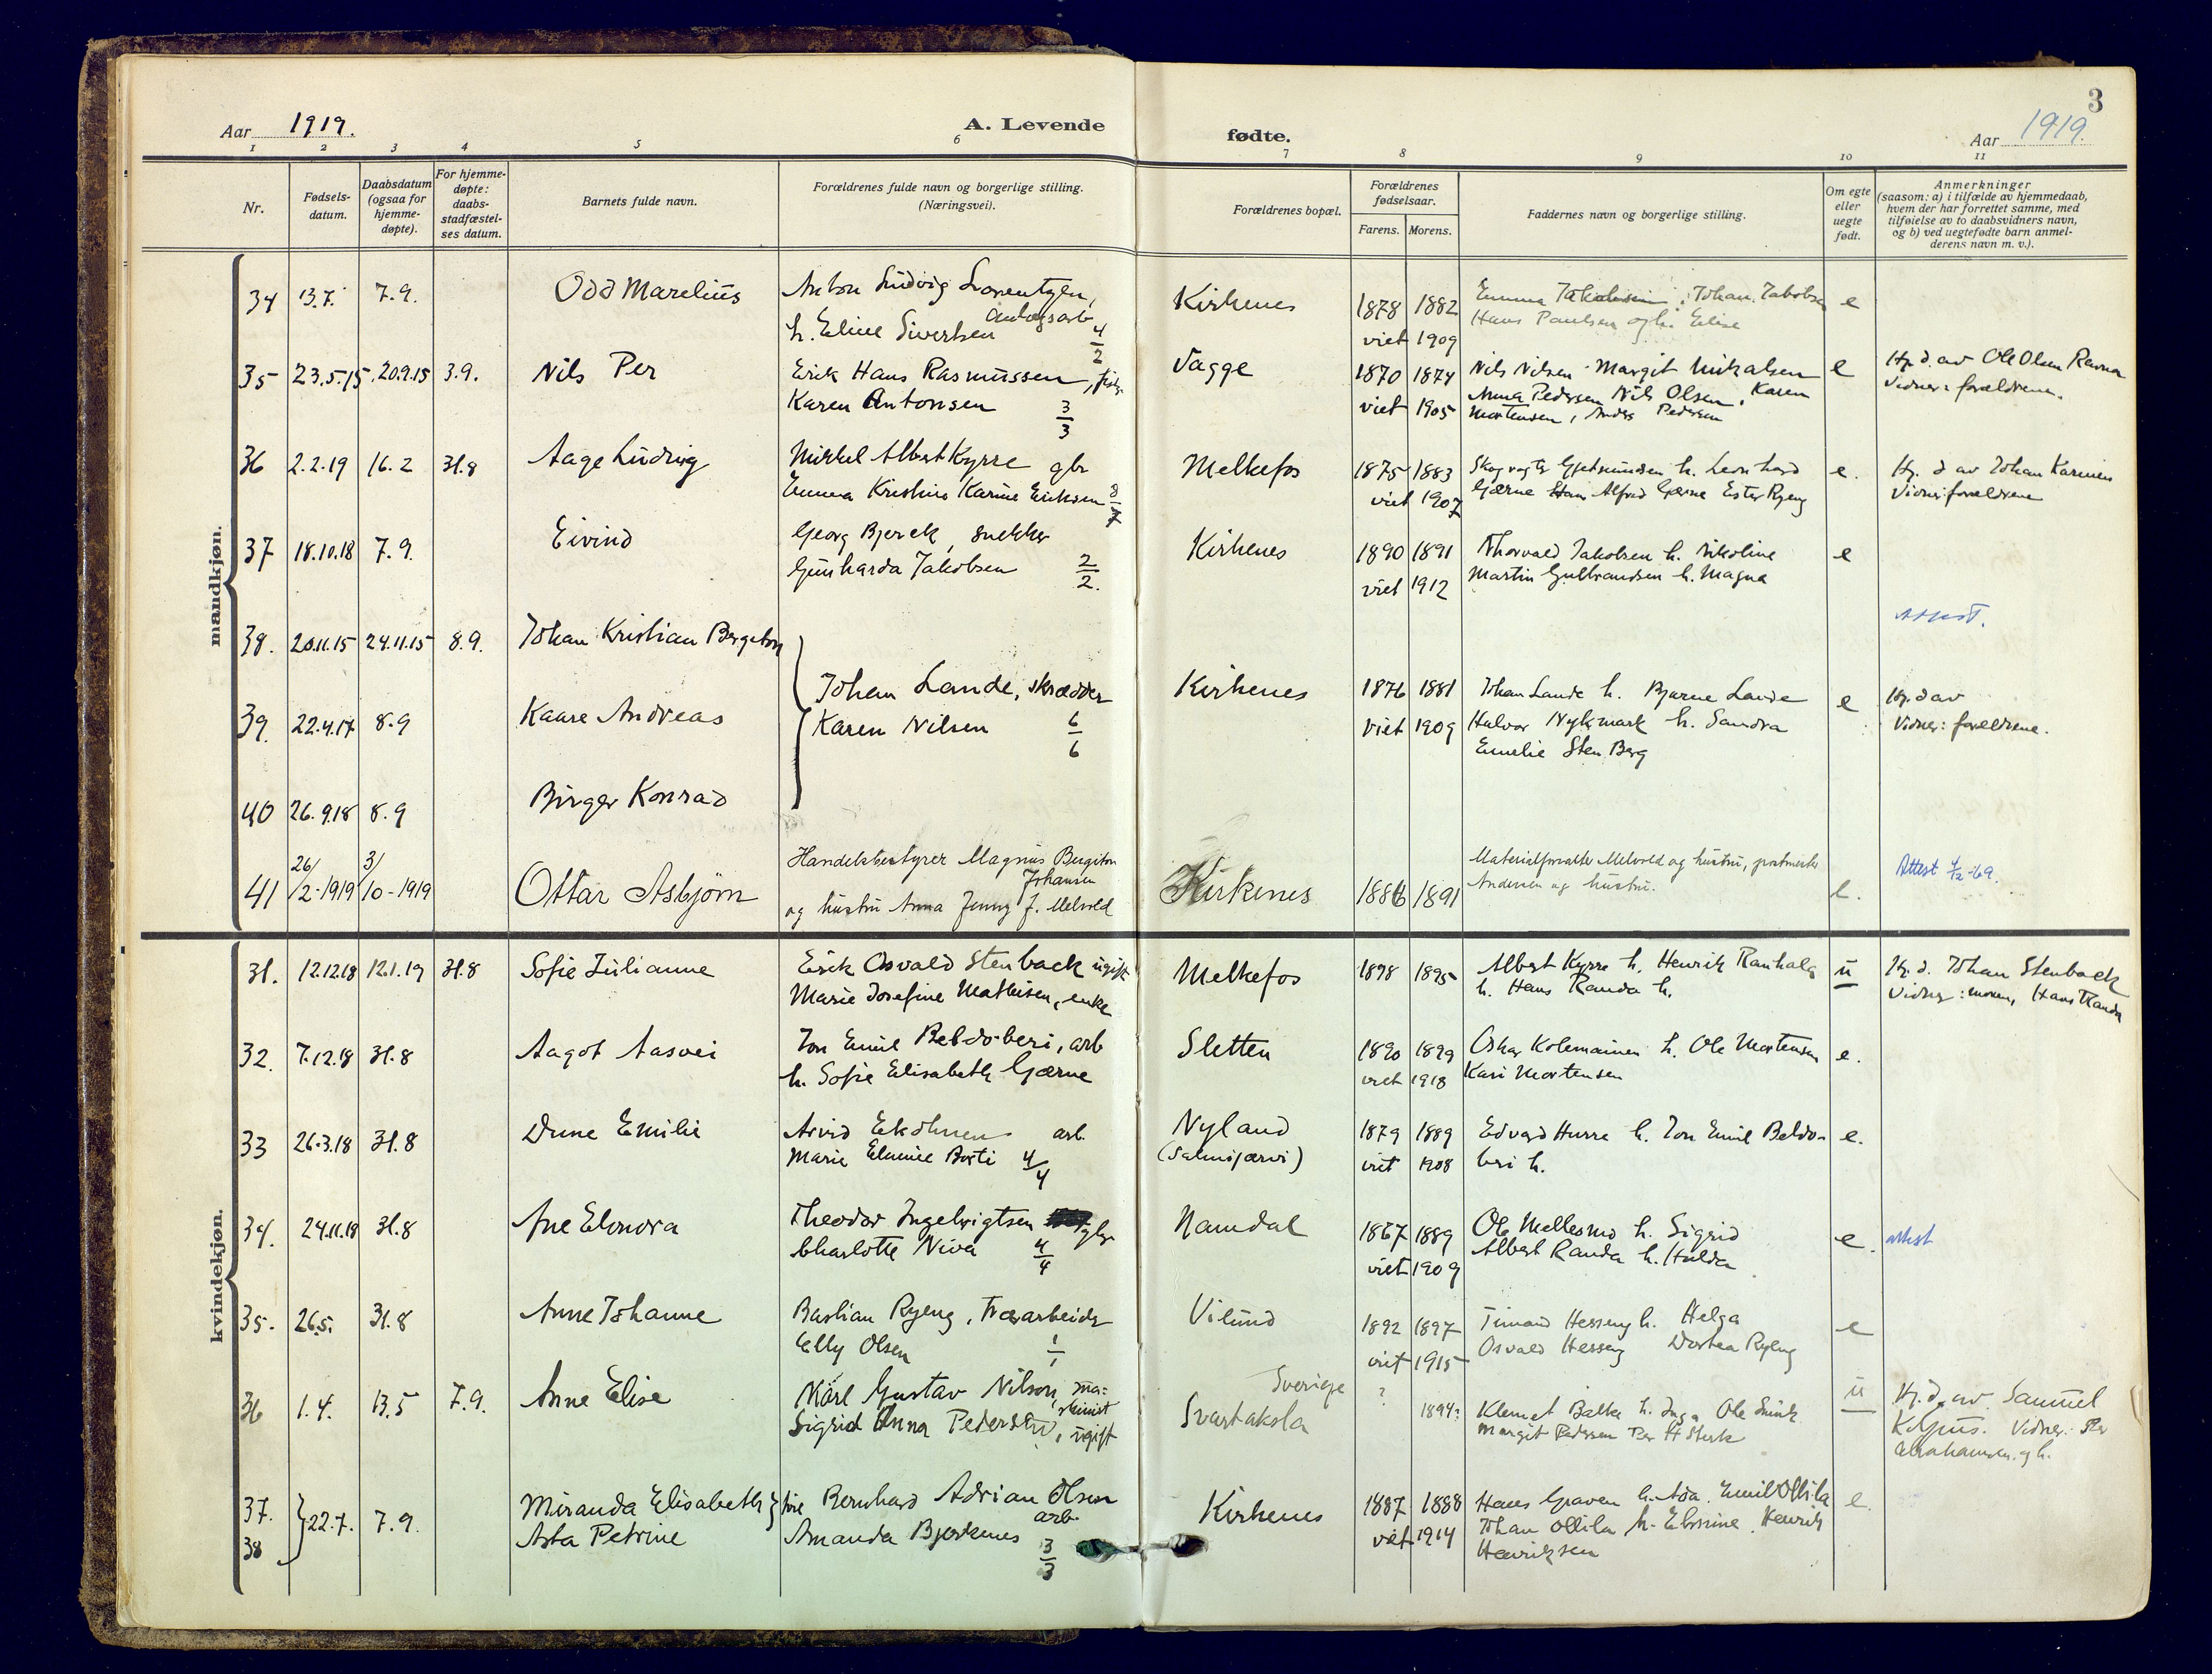 3
Aar 1919.
A. Levende fødte.
Aar 1919.
1 2 3 4 5 6 7 8 9 10 11
Nr.
Fødsels-
datum.
Daabsdatum
(ogsaa for
hjemme-
døpte).
For hjemme-
døpte:
daabs-
stadfæstel-
ses datum.
Barnets fulde navn.
Forældrenes fulde navn og borgerlige stilling.
(Næringsvei).
Forældrenes bopæl.
Forældrenes
fødselsaar.
Farens. Morens.
Faddernes navn og borgerlige stilling.
Om egte
eller
uegte
født.
Anmerkninger
(saasom: a) i tilfælde av hjemmedaab,
hvem der har forrettet samme, med
tilføielse av to daabsvidners navn,
og b) ved uegtefødte barn anmel-
derens navn m. v.).
mandkjøn.
34 13.7. 7.9. Odd Marelius Anton Ludvig Lorentzen, Kirkenes 1878 1882 Emma Johan Jakobsen e
h. Eline Sivertsen viet 1909 Hans Paulsen og h. Elise
4/2
35 23.5.15 20.9.15 3.9. Nils Per Erik Hans Rasmussen, fisker Vagge 1870 1874 Nils Nilsen Margit Mikalsen e Hj. d. av Ole Olsen Ravna
Karen Antonsen 3/3 viet 1905 Anna Pedersen Nils Olsen, Karen Vidner: forældrene.
Mortensen, Anders Pedersen
36 2.2.19 16.2 31.8 Aage Ludvig Mikkel Albert Kyrre gbr Melkefos 1875 1883 Skogvogter h. Leonhard e. Hj. d av Johan
Emma Kristine Karine Eriksen 8/7 viet 1907 Gjærne Alfred Gjærne Ester Ryeng Vidner: forældrene
37 18.10.18 7.9. Eivind Georg Bjerck, snekker Kirkenes 1890 1891 Thorvald Jakobsen h. Nikoline e
Gunharda Jakobsen 2/2. viet 1912 Martin Gulbrandsen h. Magna
Attest.
38. 20.11.15 24.11.15 8.9. Johan Kristian Bergeton
Johan Lande, skrædder Kirkenes 1876 1881 Johan Lande h. Bjarne Lande e Hj. d av
39. 22.4.17 8.9 Kaare Andreas Karen Nilsen 6/6 viet 1909 Halvor Nykmark h. Sandra Vidner: forældrene.
Emelie Sten Berg
40 26.9.18 8.9 Birger Konrad
41 26/2-1919 3/10-1919 Ottar Asbjørn Handelsbestyrer Magnus Bergiton Johansen Kirkenes 1886 1891 Materialforvalter Melvold og hustru, postmester e. Attest 4/2-69.
og hustru Anna Jenny J. Melvold Andersen og hustru.
kvindekjøn.
31. 12.12.18 12.1.19 31.8 Sofie Julianne Erik Osvald Stenback ugift Melkefos 1898 1895 Albert Kyrre h. Henrik Ranhala u Hj. d. Johan Stenback
Marie Josefine Mathisen, enke h. Hans Randa h. Vidner: moren, Hans Randa
32. 7.12.18 31.8 Aagot Aasvei Jon Emil Beldoberi, arb Sletten 1890 1899 Oskar Kolemainen h. Ole Mortensen e.
h. Sofie Elisabeth Gjærne viet 1918 Kari Mortensen
33 26.3.18 31.8 Dune Emilie Arvid arb. Nyland 1879 1889 Edvard Hurre h. Jon Emil Beldo- e.
Marie 4/4 (Salmijærvi) viet 1908 beri h.
34. 24.11.18 31.8 Ane Elonora Theodor Ingebrigtsen gbr Namdal 1867 1889 Ole Mellesmo h. Sigrid e. attest
Charlotte Niva 4/4 viet 1909 Albert Randa h. Hulda
35. 26.5. 31.8 Anne Johanne Bastian Ryeng, Træarbeider Vilund 1892 1897 Timand Hesseng h. Helga e
Elly Olsen 1/1 viet 1915 Osvald Hesseng Dortea Ryeng
36 1.4. 13.5 7.9. Anne Elise Karl Gustav Nilson, ma- Sverige ? 1894? Klemet Balke h. Inga Ole u Hj. d. av Samuel
skinist
Sigrid Anna Pedersen, ugift Svartaksla Margit Pedersen Per H Vidner: Per
Abrahamsen og h.
37. 22.7. 7.9. Miranda Elisabeth Bernhard Adrian Olsen arb. Kirkenes 1887 1888 Hans Graven h. Ada. Emil Ollila e.
38 Asta Petrine Amanda Bjerkenes 3/3 viet 1914 Johan Ollila h. Henrik
Henriksen